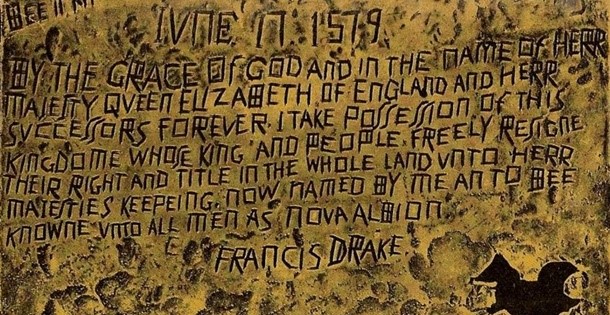 BEE IT
IVNE 17 1579
BY THE GRACE OF GOD AND IN THE NAME OF HERR
MAIESTY QVEEN ELIZABETH OF ENGLAND AND HERR
SVCCESSORS FOREVER. I TAKE POSSESSION OF THIS
KINGDOME WHOSE KING AND PEOPLE FREELY RESIGNE
THEIR RIGHT AND TITLE IN THE WHOLE LAND VNTO HERR
MAIESTIES KEEPEING. NOW NAMED BY ME AN TO BEE
KNOWNE VNTO ALL MEN AS NOVA ALBION
FRANCIS DRAKE.